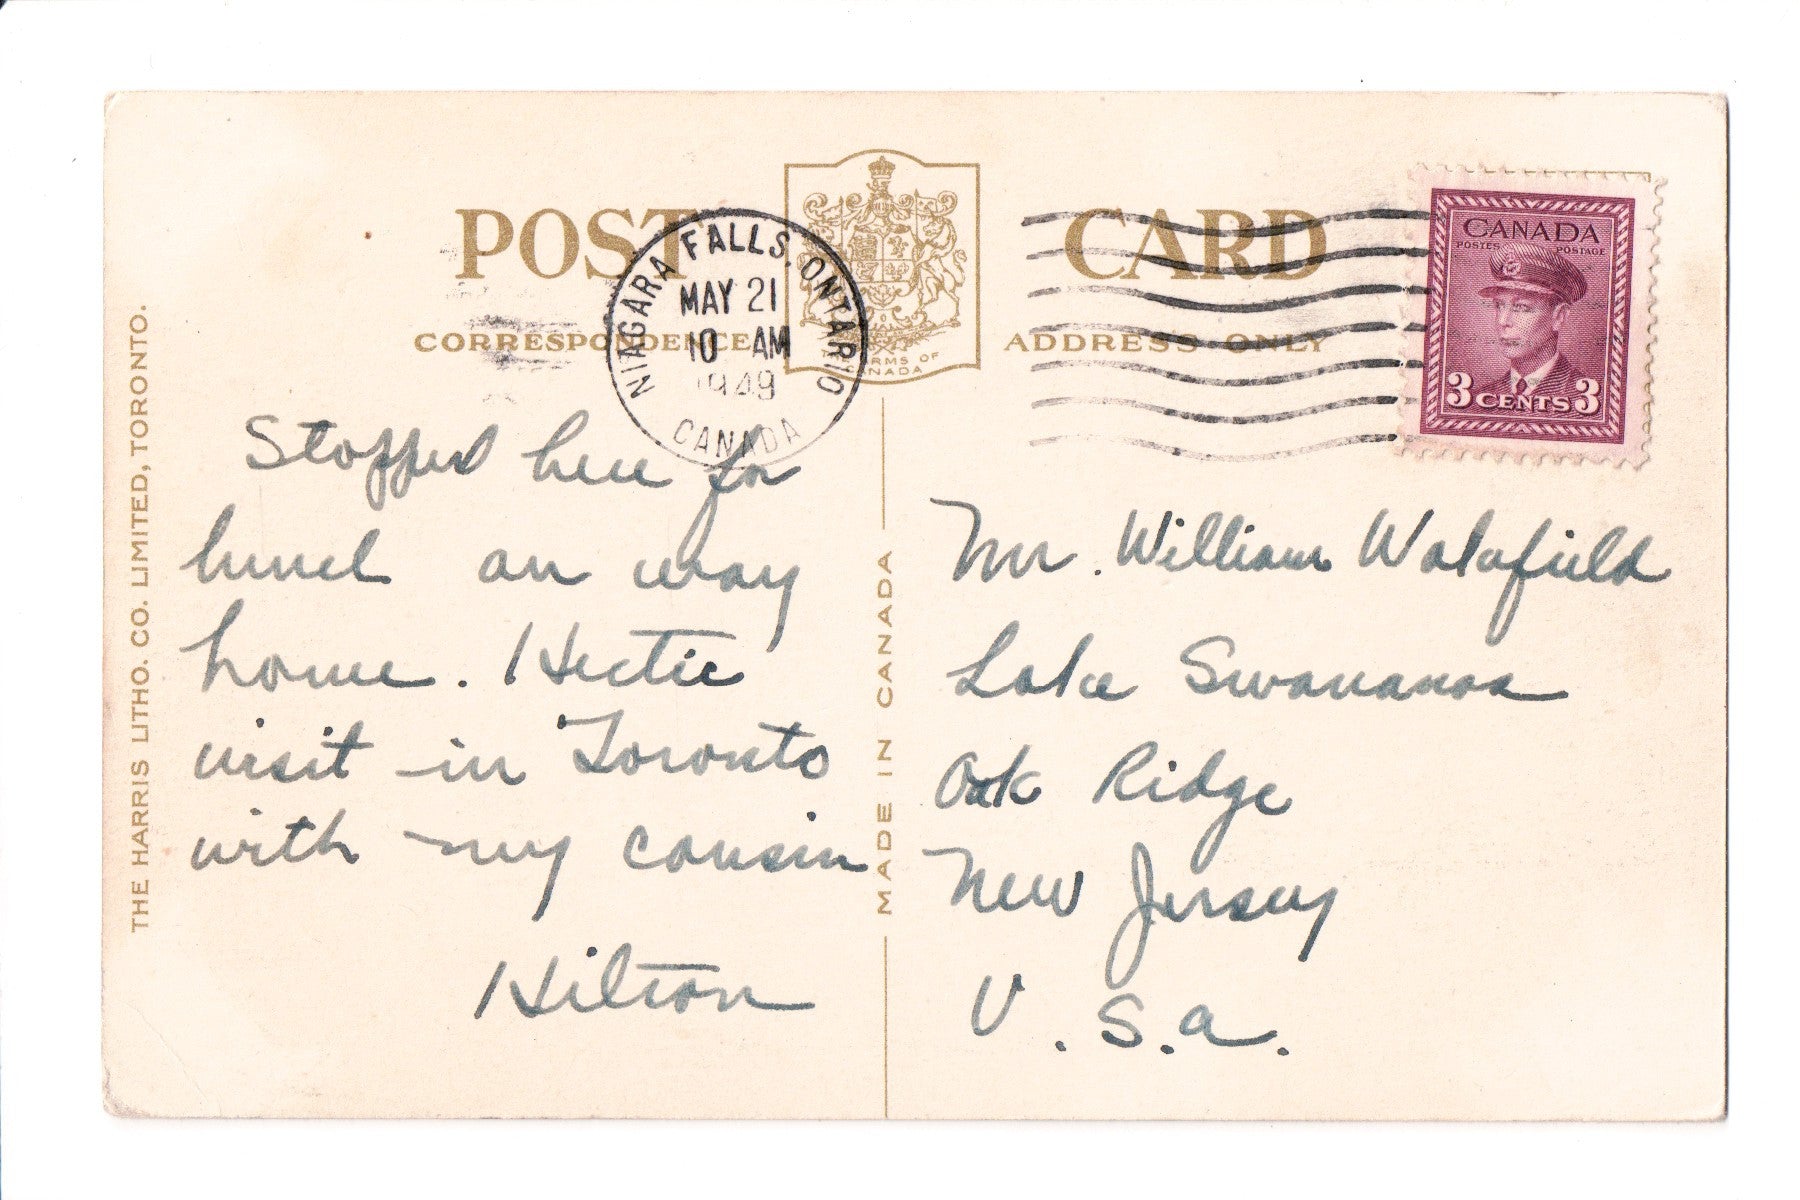 POST CARD
CORRESPONDENCE ADDRESS ONLY
ARMS OF
CANADA
NIAGARA FALLS, ONTARIO
MAY 21
10 AM
1949
CANADA
CANADA
POSTES POSTAGE
3 CENTS 3
THE HARRIS LITHO. CO. LIMITED, TORONTO.
Stopped here for
lunch on way
home. Hectic
visit in Toronto
with my cousin
Hilton
MADE IN CANADA
Mr. William Wakefield
Lake Swananoa
Oak Ridge
New Jersey
U.S.A.